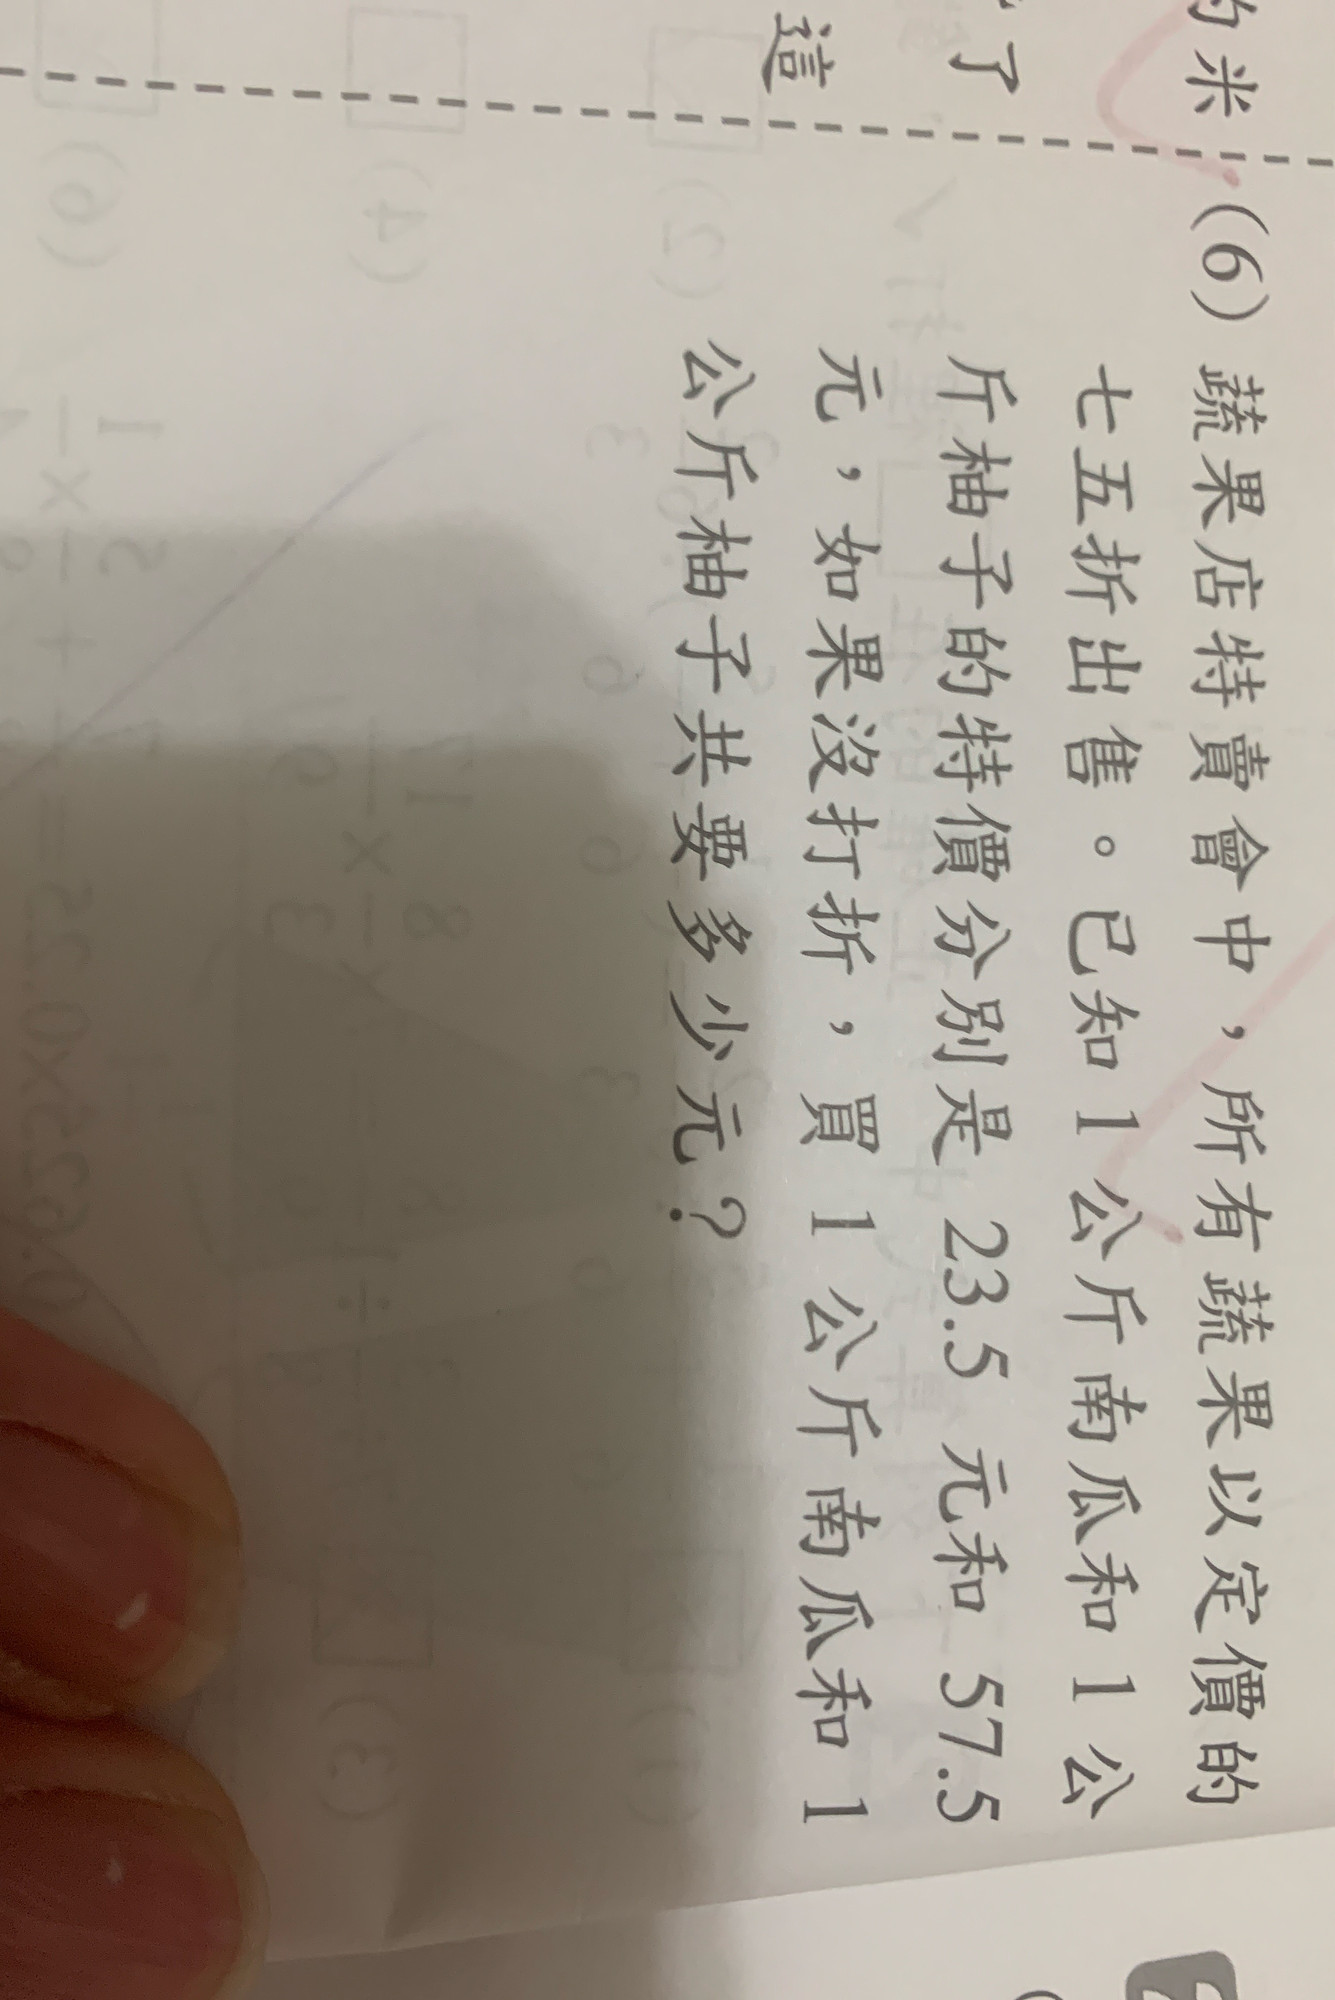 的米
了
這
(6) 蔬果店特賣會中，所有蔬果以定價的
七五折出售。已知1公斤南瓜和1公
斤柚子的特價分別是 23.5 元和 57.5
元，如果沒打折，買 1 公斤南瓜和 1
公斤柚子共要多少元？